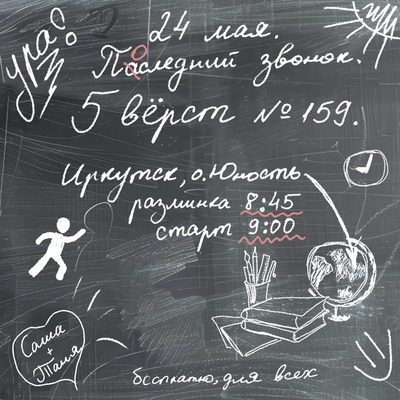 ура!
24 мая.
Последний звонок.
5 вёрст № 159.
Иркутск, о.Юность
разминка 8:45
старт 9:00
Саша
+
Таня
бесплатно, для всех